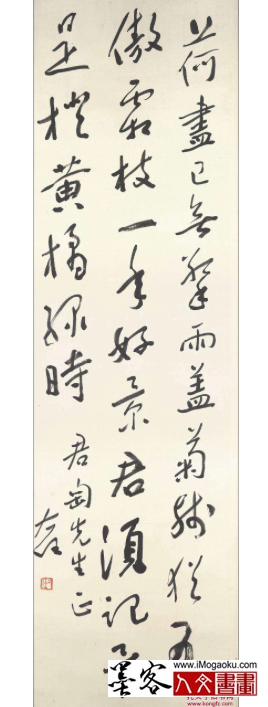 荷盡已無擎雨盖菊殘猶有
傲霜枝一年好景君須記正
是橙黄橘緑時
君匋先生正
www.iMogaoku.com
墨客人文書畫
www.kongfz.com